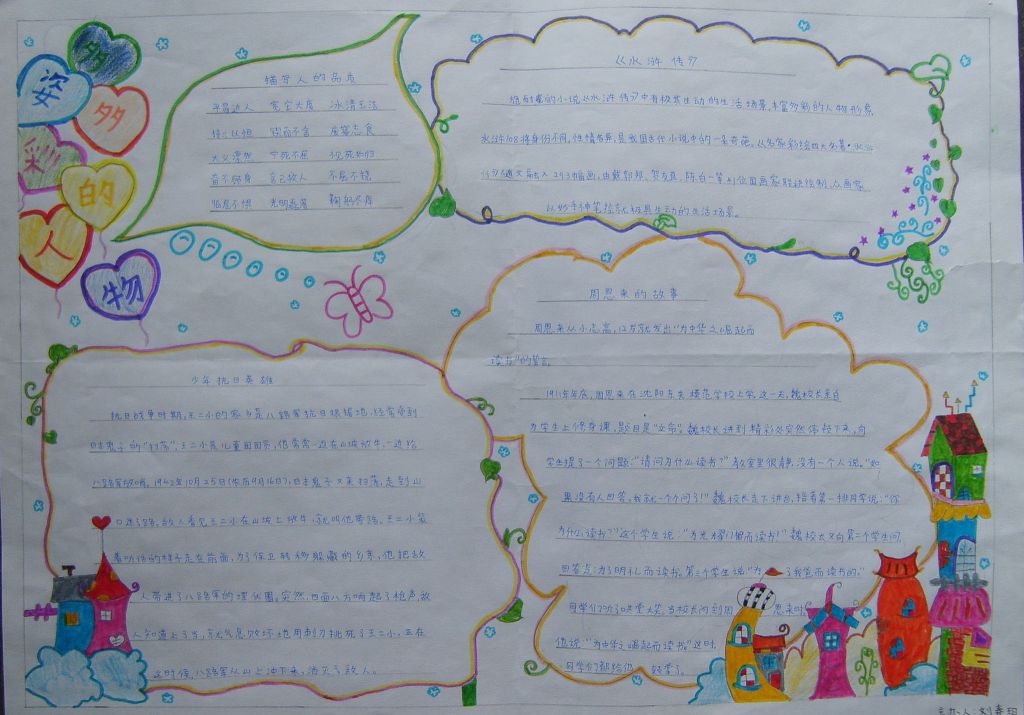 多
姿
多
彩
的
人
物
描写人的品质
平易近人 宽宏大度 冰清玉洁
持之以恒 锲而不舍 废寝忘食
大义凛然 宁死不屈 视死如归
奋不顾身 舍己救人 不屈不挠
临危不惧 光明磊落 鞠躬尽瘁
《水浒传》
施耐庵的小说《水浒传》中有极其生动的生活场景,丰富多彩的人物形象,
水浒108将身份不同,性情各异,是我国古代小说中的一朵奇葩。《名家彩绘四大名著·水浒
传》随文融入243幅画,由戴邦、贺友直、陈白一等
以妙手神笔描绘就极具生动的生活场景。
周恩来的故事
周恩来从小志高,12岁就发出"为中华之崛起而
读书"的誓言。
1911年年底,周恩来在沈阳东关模范学校上学,这一天,魏校长亲自
为学生上修身课,题目是"立命",魏校长讲到精彩处突然停顿下来,向
学生提了一个问题:"请问为什么读书?"教室里很静,没有一个人说。"如
果没有人回答,我就一个个问了!"魏校长走下讲台,指着第一排同学说:"你
为什么读书?"这个学生说:"为光耀门楣而读书!"魏校长又向第二个学生问,
回答是:为了明礼而读书。第三个学生说:"为 了我爸而读书的。"
同学们哄堂大笑,当校长问到周恩来时,
他说:"为中华之崛起而读书"这时,
同学们都给他 鼓掌了。
少年抗日英雄
抗日战争时期,王二小的家乡是八路军抗日根据地,经常受到
日本鬼子的"扫荡",王二小是儿童团团员,他常常一边在山坡放牛,一边给
八路军放哨,1942年10月25日(农历9月16日),日本鬼子又来扫荡,走到山
口迷了路。敌人看见王二小在山坡上放牛,就叫他带路。王二小装
着听话的样子走在前面,为了保卫转移躲藏的乡亲,他把敌
人带进了八路军的埋伏圈,突然,四面八方响起了枪声,敌
人知道上了当,就气急败坏地用刺刀挑死了王二小,正在
这时候,八路军从山上冲下来,消灭了敌人。
主办人:刘